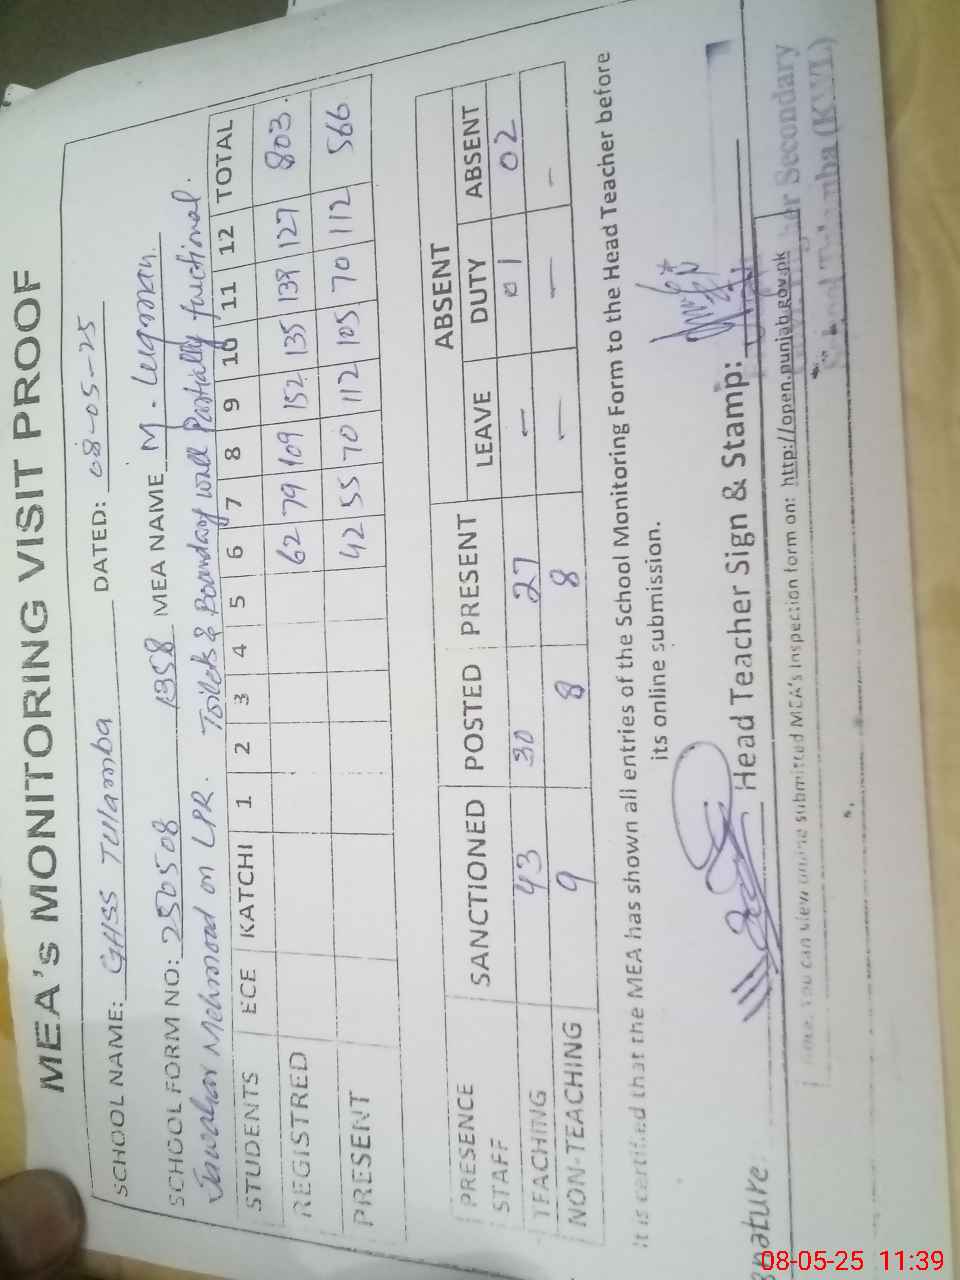 MEA's MONITORING VISIT PROOF
SCHOOL NAME: GHSS Tulamba DATED: 08-05-25
SCHOOL FORM NO: 250508 1358 MEA NAME M. Luqman
Jawahar Mehmood on LPR. Toilets & Boundary wall Partially functional.
STUDENTS ECE KATCHI 1 2 3 4 5 6 7 8 9 10 11 12 TOTAL
REGISTRED 62 79 109 152 135 139 127 803.
PRESENT 42 55 70 112 105 70 112 566
PRESENCE SANCTIONED POSTED PRESENT ABSENT
STAFF LEAVE DUTY ABSENT
TEACHING 43 30 27 — 01 02
NON-TEACHING 9 8 8 — — —
It is certified that the MEA has shown all entries of the School Monitoring Form to the Head Teacher before
its online submission.
gnature Head Teacher Sign & Stamp:
You can view online submitted MEA's Inspection form on: http://open.punjab.gov.pk
Secondary
School Tulamba (KWL)
08-05-25 11:39